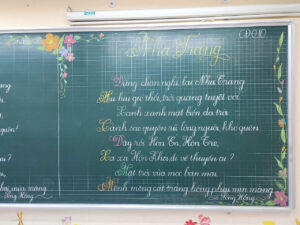 Nha Trang
Dừng chân nghỉ lại Nha Trang
Hiu hiu gió thổi, trời quang tuyệt vời
Xanh xanh mặt biển da trời
Cảnh sao quyến rũ lòng người khó quên
Đây rồi Hòn Én, Hòn Tre,
Xa xa Hòn Khói đi về thuyền ai?
Mặt trời vừa mọc ban mai
Mênh mông cát trắng, bông phi mịn màng
Sóng Hồng